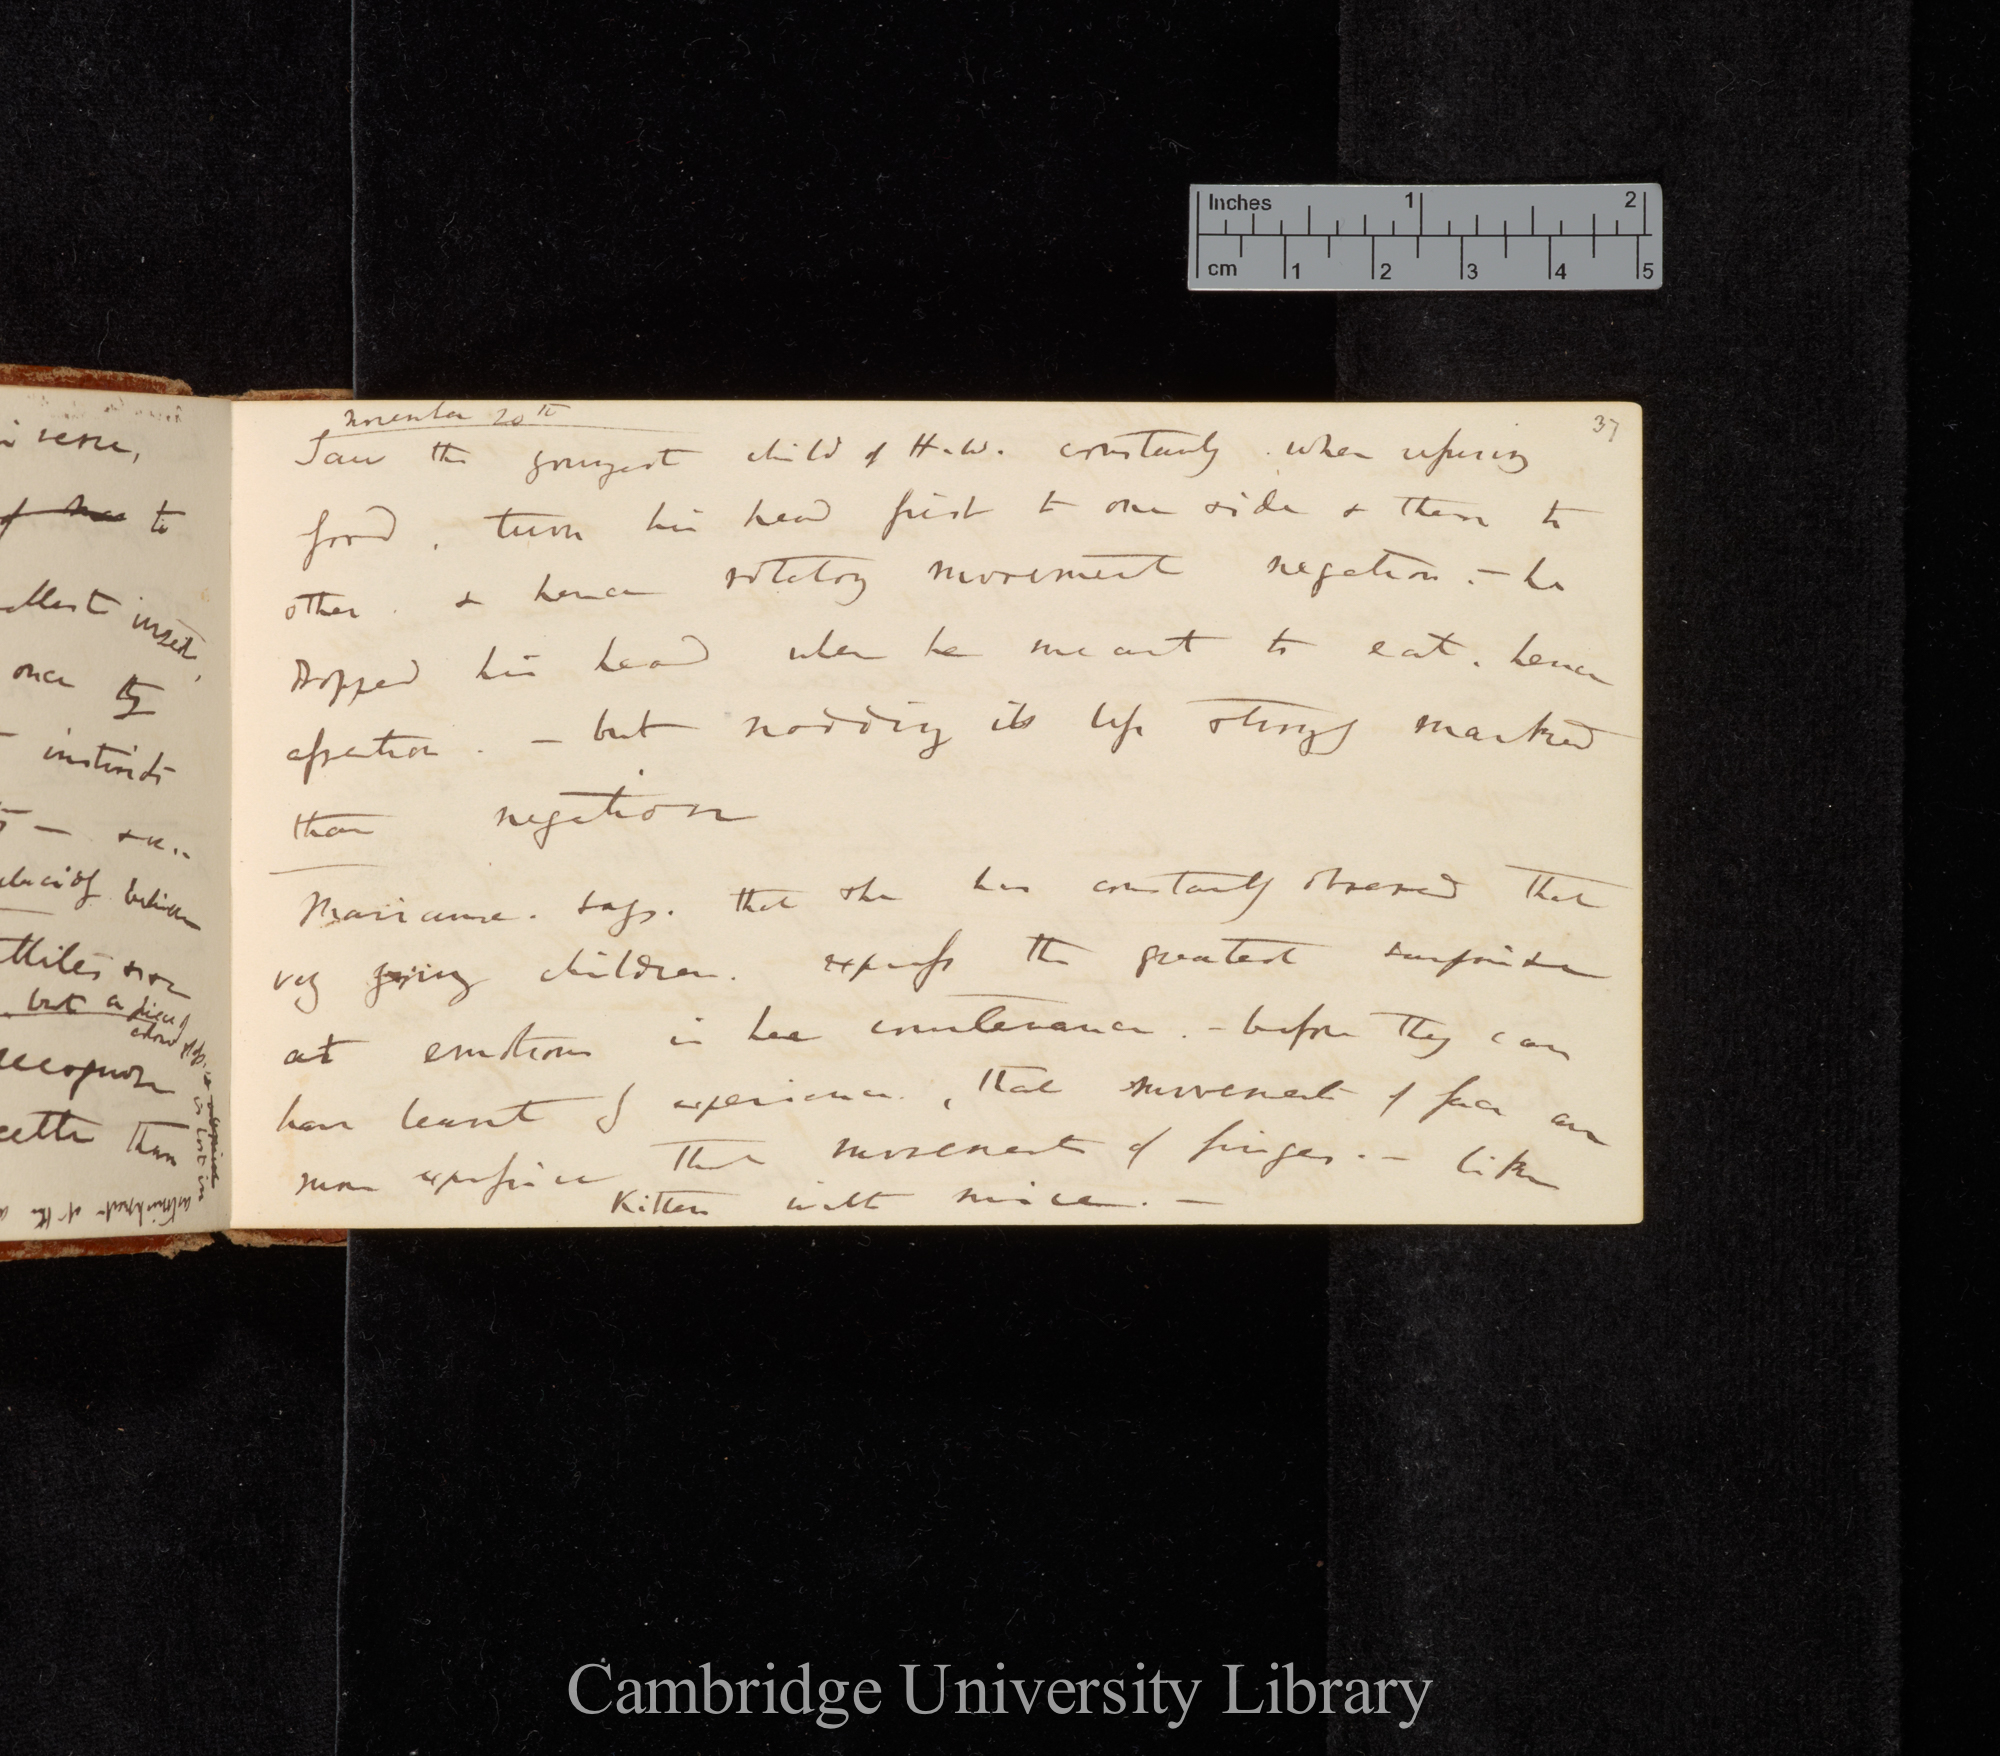 i sense,
to
smallest insect,
once thy
instincts
— &c..
between
but a piece of
recognise
than
37
November 20th
Saw the youngest child of H.W. constantly when refusing
food, turn his head first to one side & then to
other. & hence rotatory movement negation. — he
dropped his head when he meant to eat. hence
assertion. — but nodding is less strongly marked
than negation
Marianne. says. that she has constantly observed that
very young children. express the greatest surprise
at emotions in her countenance. — before they can
have learnt by experience, that movements of face are
more expressive than movements of fingers. — like
Kitten with mice. —
Inches 1 2
cm 1 2 3 4 5
Cambridge University Library